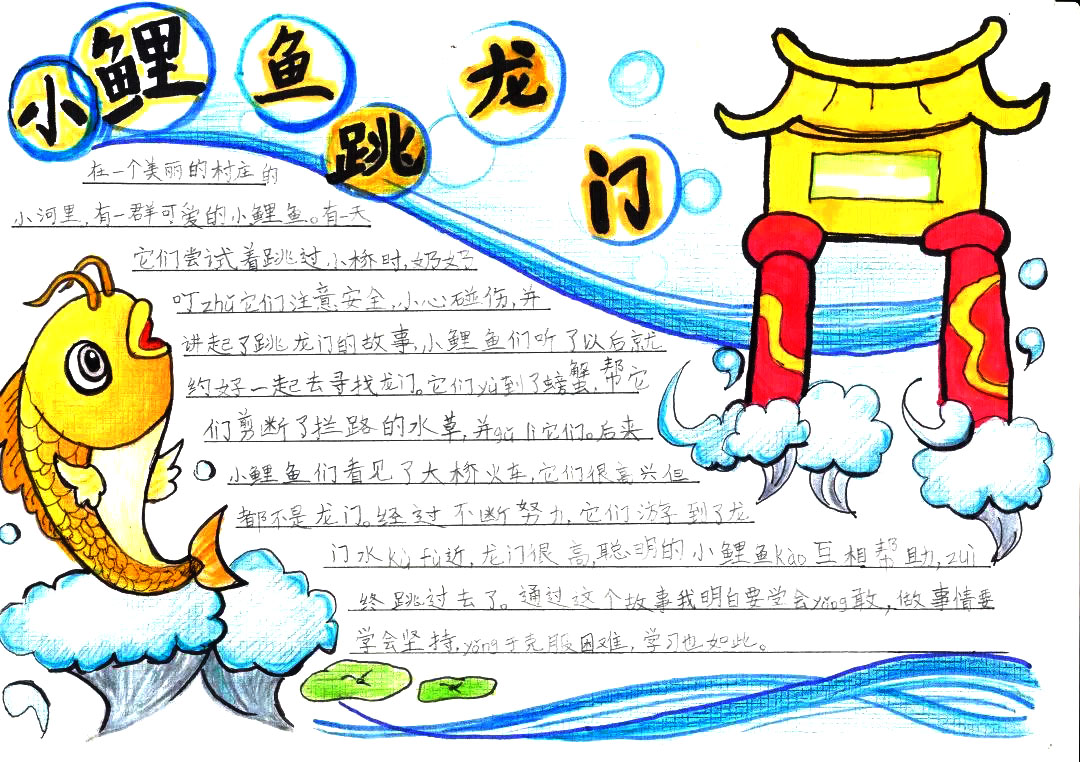 小鲤鱼跳龙门
在一个美丽的村庄的
小河里,有一群可爱的小鲤鱼。有一天
它们尝试着跳过小桥时,奶奶
叮zhǔ它们注意安全,小心碰伤,并
讲起了跳龙门的故事,小鲤鱼们听了以后就
约好一起去寻找龙门。它们yù到了螃蟹,帮它
们剪断了拦路的水草,并gǔ lì它们。后来
小鲤鱼们看见了大桥火车,它们很高兴但
都不是龙门。经过不断努力,它们游到了龙
门水kù fù近,龙门很高,聪明的小鲤鱼kào互相帮助,zuì
终跳过去了。通过这个故事我明白要学会yǒng敢,做事情要
学会坚持,yǒng于克服困难,学习也如此。